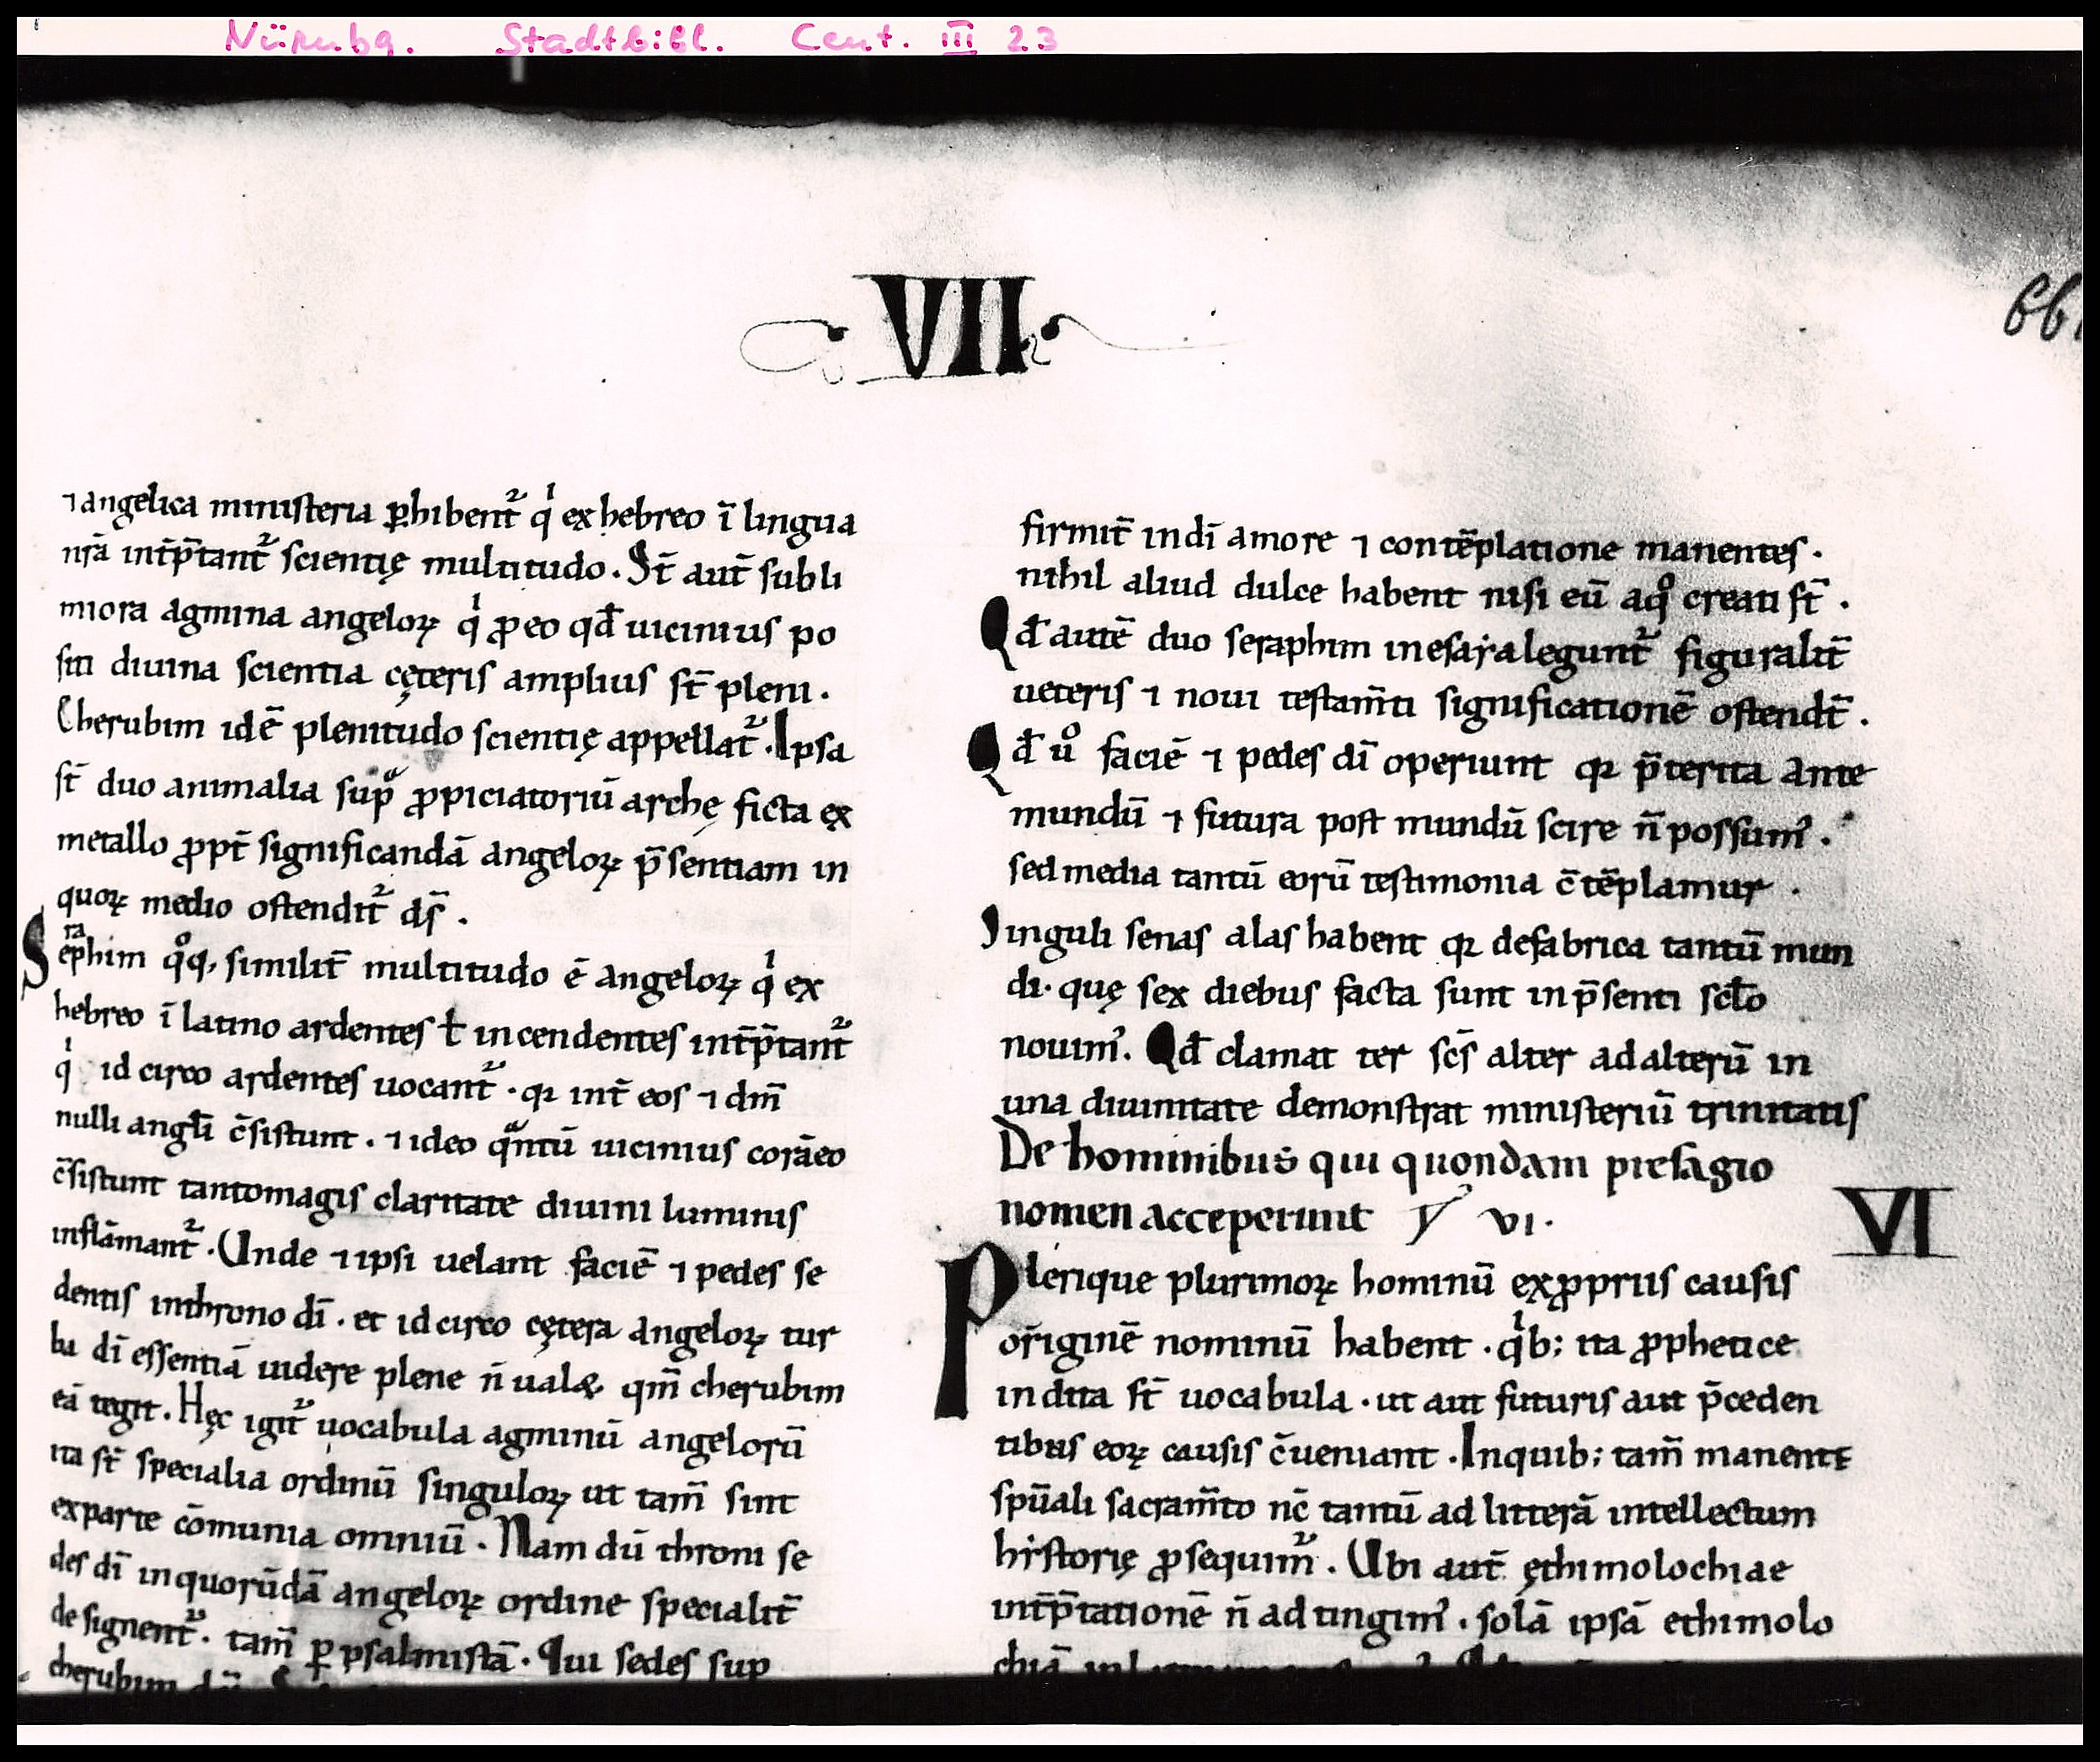 Nürnbg. Stadtbibl. Cent. III 23
VII
66
⁊ angelica ministeria ꝑhibent᷑ qͥ ex hebreo ī lingua
nr̄a int̄p̄tant᷑ scientię multitudo. St̄ aut̄ subli
miora agmina angeloꝝ qͥ ꝓ eo qđ uicinius po
siti diuina scientia cęteris amplius st̄ pleni.
Cherubim idē plenitudo scientię appellat᷑. Ipsa
st̄ duo animalia supᵃ ꝓpiciatoriū archę ficta ex
metallo ꝓpt̄ significandā angeloꝝ p̄sentiam in
quoꝝ medio ostendit᷑ ds̄.
Seraphim qͦq, similit̄ multitudo ē angeloꝝ qͥ ex
hebreo ī latino ardentes ł incendentes int̄p̄tant᷑
qͥ id circo ardentes uocant᷑. qꝛ int̄ eos ⁊ dm̄
nulli angłi c̄sistunt. ⁊ ideo qᵃntū uicinius corā eo
c̄sistunt tantomagis claritate diuini luminis
inflāmant᷑. Unde ⁊ ipsi uelant faciē ⁊ pedes se
dentis inthrono dī. et id circo cętera angeloꝝ tur
ba dī essentiā uidere plene n̄ ualet, qm̄ cherubim
eā tegit. Hęc igit᷑ uocabula agminū angelorū
ita st̄ specialia ordinū singuloꝝ ut tam̄ sint
exparte cōmunia omniū. Nam dū throni se
des dī inquorūdā angeloꝝ ordine specialit̄
designent᷑. tam̄ ꝑ psalmistā. Qui sedes sup
cherubim
firmit̄ indī amore ⁊ contēplatione manentes.
nihil aliud dulce habent nisi eū aqͦ creati st̄.
Qđ autē duo seraphim inesaẏa legunt᷑ figuralit̄
ueteris ⁊ noui testam̄ti significationē ostendt̄.
Qđ uͦ faciē ⁊ pedes dī operiunt qꝛ p̄terita ante
mundū ⁊ futura post mundū scire n̄ possumꝰ.
sed media tantū eorū testimonia c̄tēplamur.
Singuli senas alas habent qꝛ defabrica tantū mun
di. quę sex diebus facta sunt inp̄senti scło
nouimꝰ. Qđ clamat ter sc̄s alter adalterū in
una diuinitate demonstrat ministeriū trinitatis
De hominibus qui quondam presagio
nomen acceperunt VI.
VI
Plerique plurimoꝝ hominū exꝓpriis causis
originē nominū habent. qͥb; ita ꝓphetice
indita st̄ uocabula. ut aut futuris aut p̄ceden
tibus eoꝝ causis c̄ueniant. Inquib; tam̄ manente
spūali sacram̄to nc̄ tantū ad litterā intellectum
historię ꝓsequim᷑. Ubi aut̄ ęthimolochiae
int̄p̄tationē n̄ adtingimꝰ. solā ipsā ethimolo
chiā